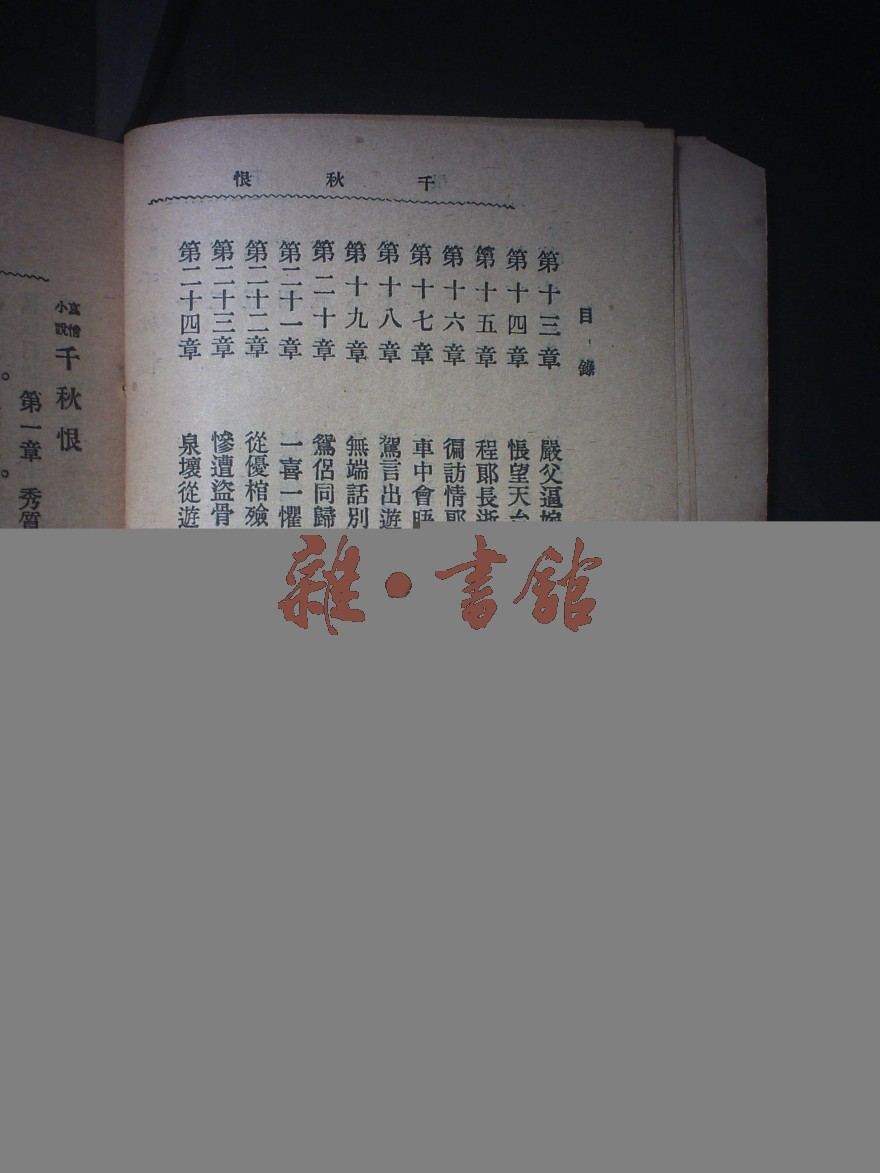 千秋恨
目錄
第十三章 嚴父逼婚
第十四章 悵望天台
第十五章 程郎長逝
第十六章 徧訪情郎
第十七章 車中會晤
第十八章 駕言出遊
第十九章 無端話別
第二十章 鴛侶同歸
第二十一章 一喜一懼
第二十二章 從優棺殮
第二十三章 慘遭盜骨
第二十四章 泉壤從遊
小說
千秋恨
第一章 秀質
雜·書館